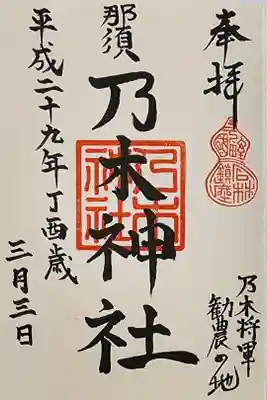 奉拝
乃木将軍
勧農の地
那須
乃木神社
平成二十九年丁酉歳
三月三日
乃木神社